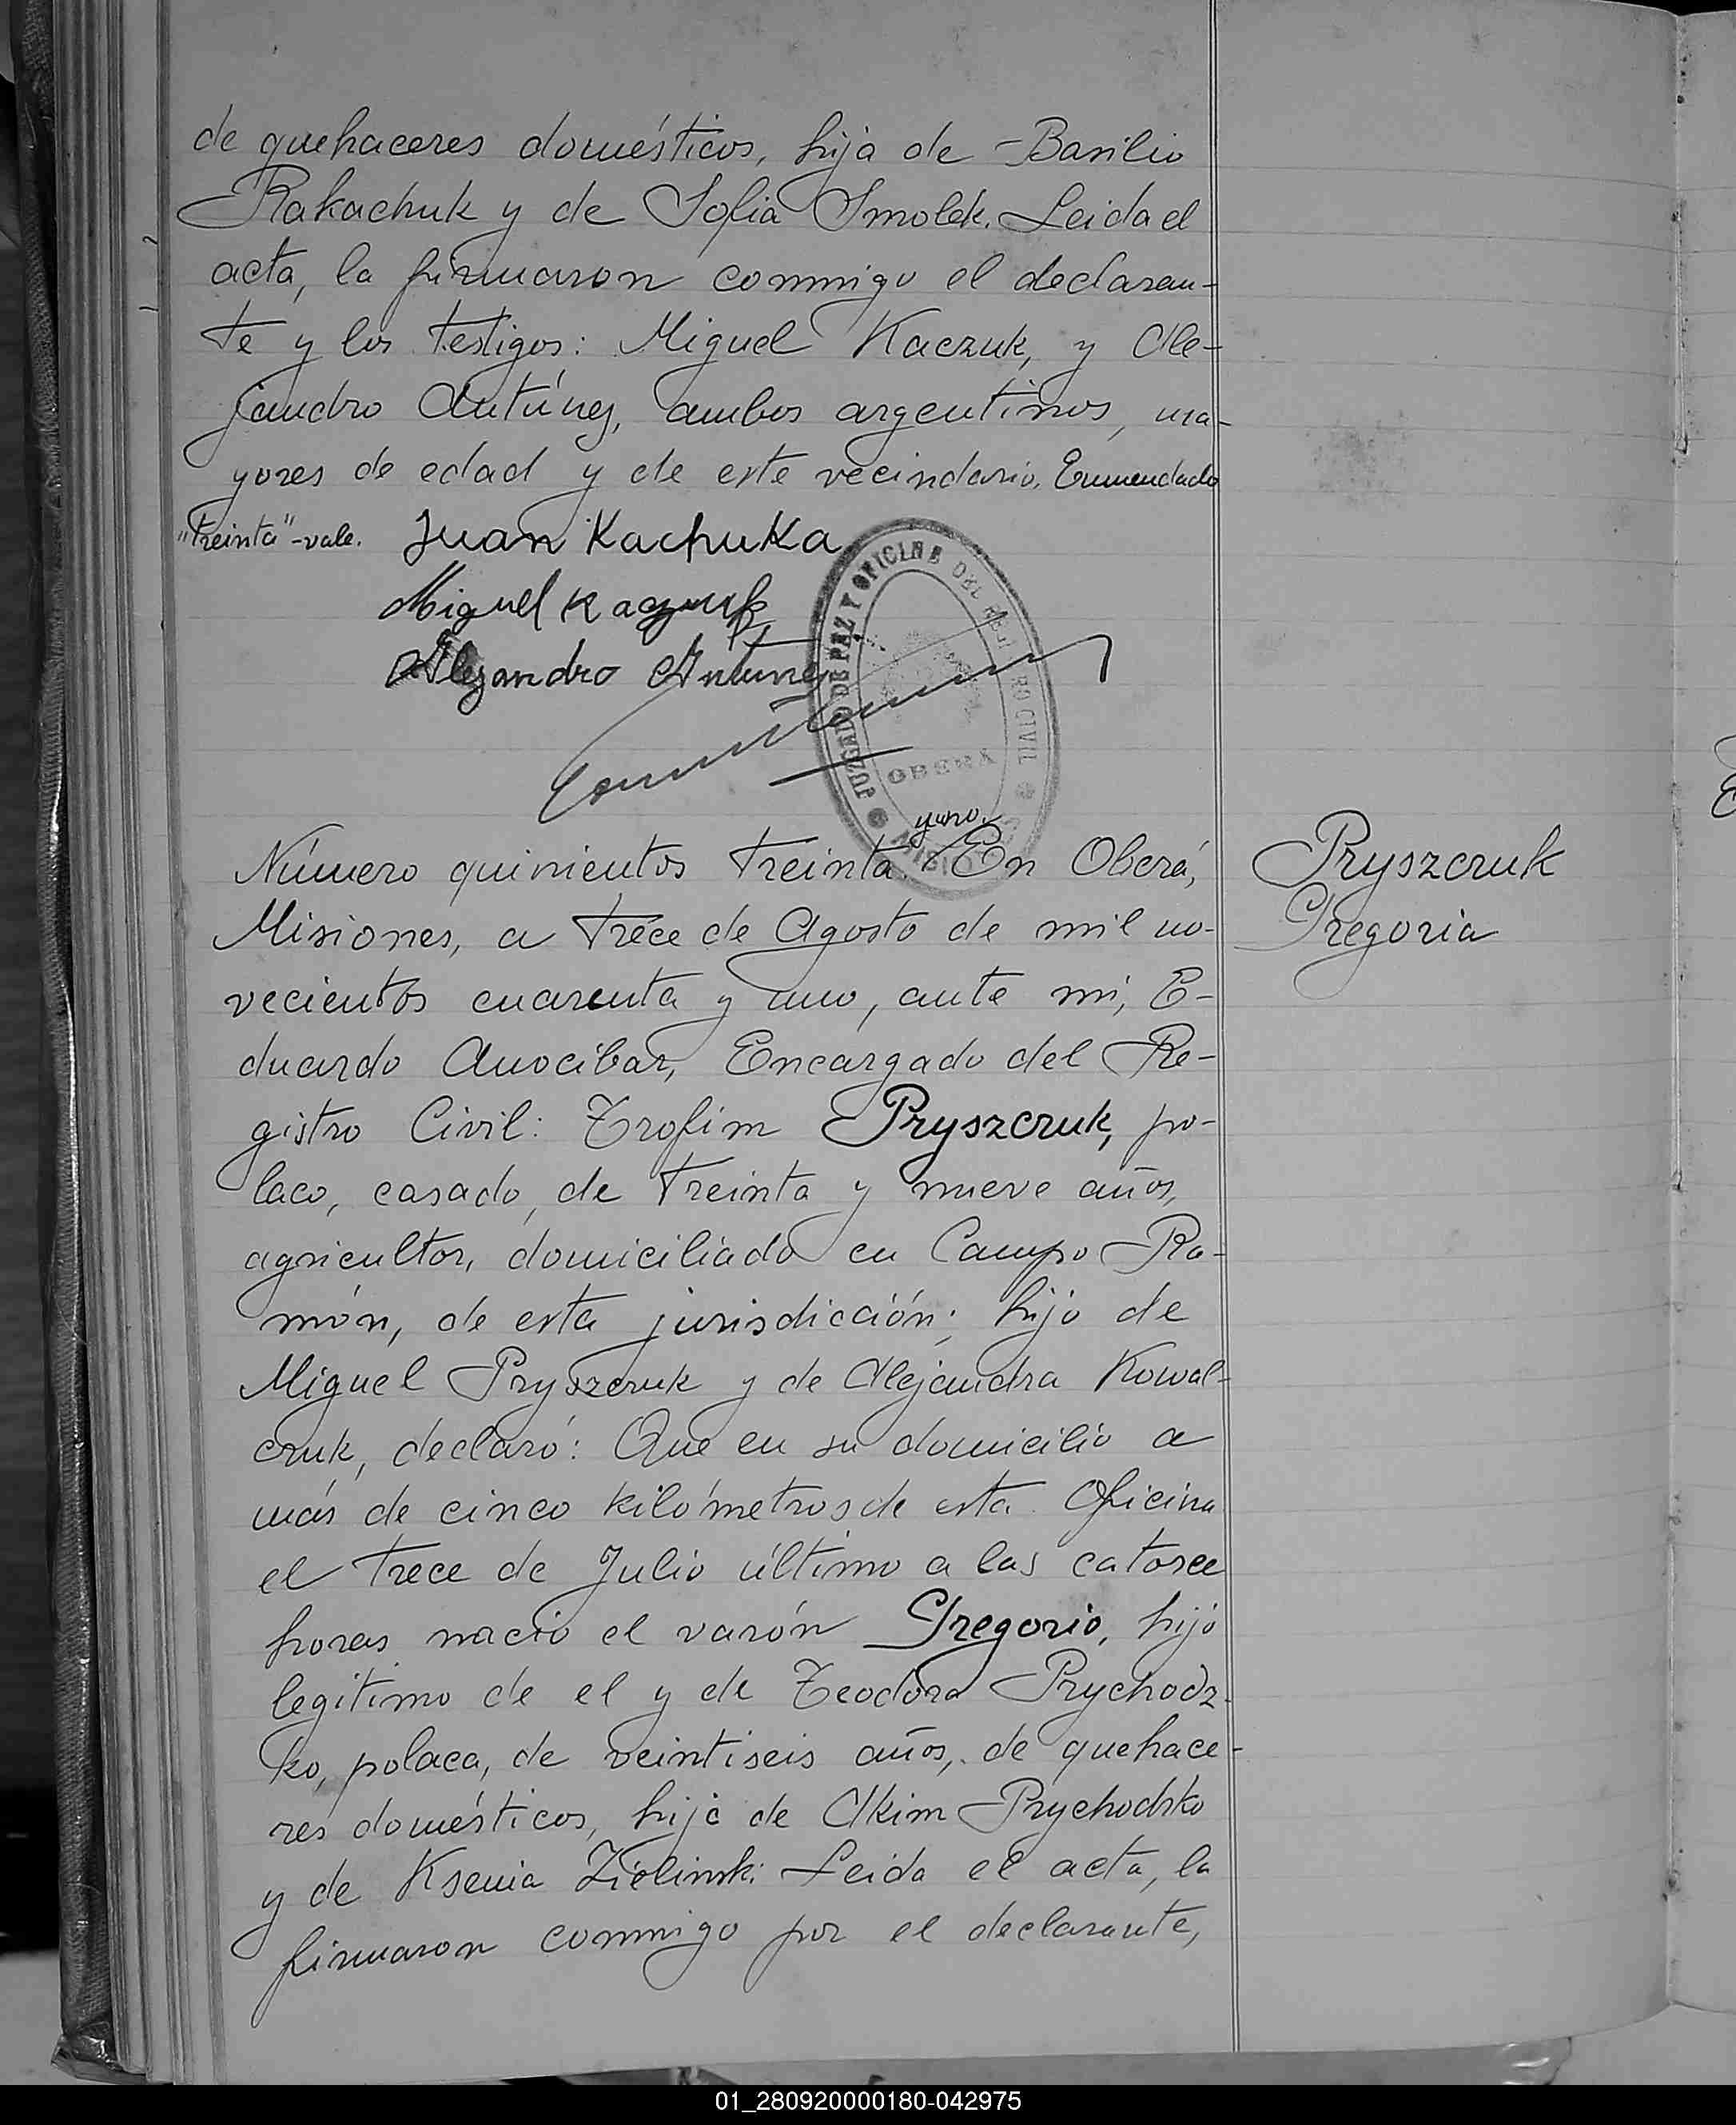 de quehaceres domésticos, hija de Basilio
Rakachuk y de Sofia Smolek. Leida el
acta, la firmaron conmigo el declaran-
te y los testigos: Miguel Kaczuk, y Ale-
jandro Antúnez, ambos argentinos, ma-
yores de edad y de este vecindario. Enmendado
"treinta"-vale. Juan Kachuka
Miguel Kaczuk
Alejandro Antunez
JUZGADO DE PAZ Y OFICINA DEL REGISTRO CIVIL
OBERA
MISIONES
y uno.
Número quinientos treinta. En Oberá,
Misiones, a trece de Agosto de mil no-
vecientos cuarenta y uno, ante mi, E-
duardo Anocibar, Encargado del Re-
gistro Civil: Trofim Pryszcruk, po-
laco, casado, de treinta y nueve años,
agricultor, domiciliado en Campo Ra-
món, de esta jurisdicción; hijo de
Miguel Pryszcruk y de Alejandra Kowal-
cruk, declaró: Que en su domicilio a
más de cinco kilómetros de esta Oficina
el trece de Julio último a las catorce
horas nació el varón Gregorio, hijo
legitimo de el y de Teodora Prychodz-
ko, polaca, de veintiseis años, de quehace-
res domésticos, hija de Akim Prychodzko
y de Ksenia Zielinski. Leida el acta, la
firmaron conmigo por el declarante,
Pryszcruk
Gregorio
01_280920000180-042975